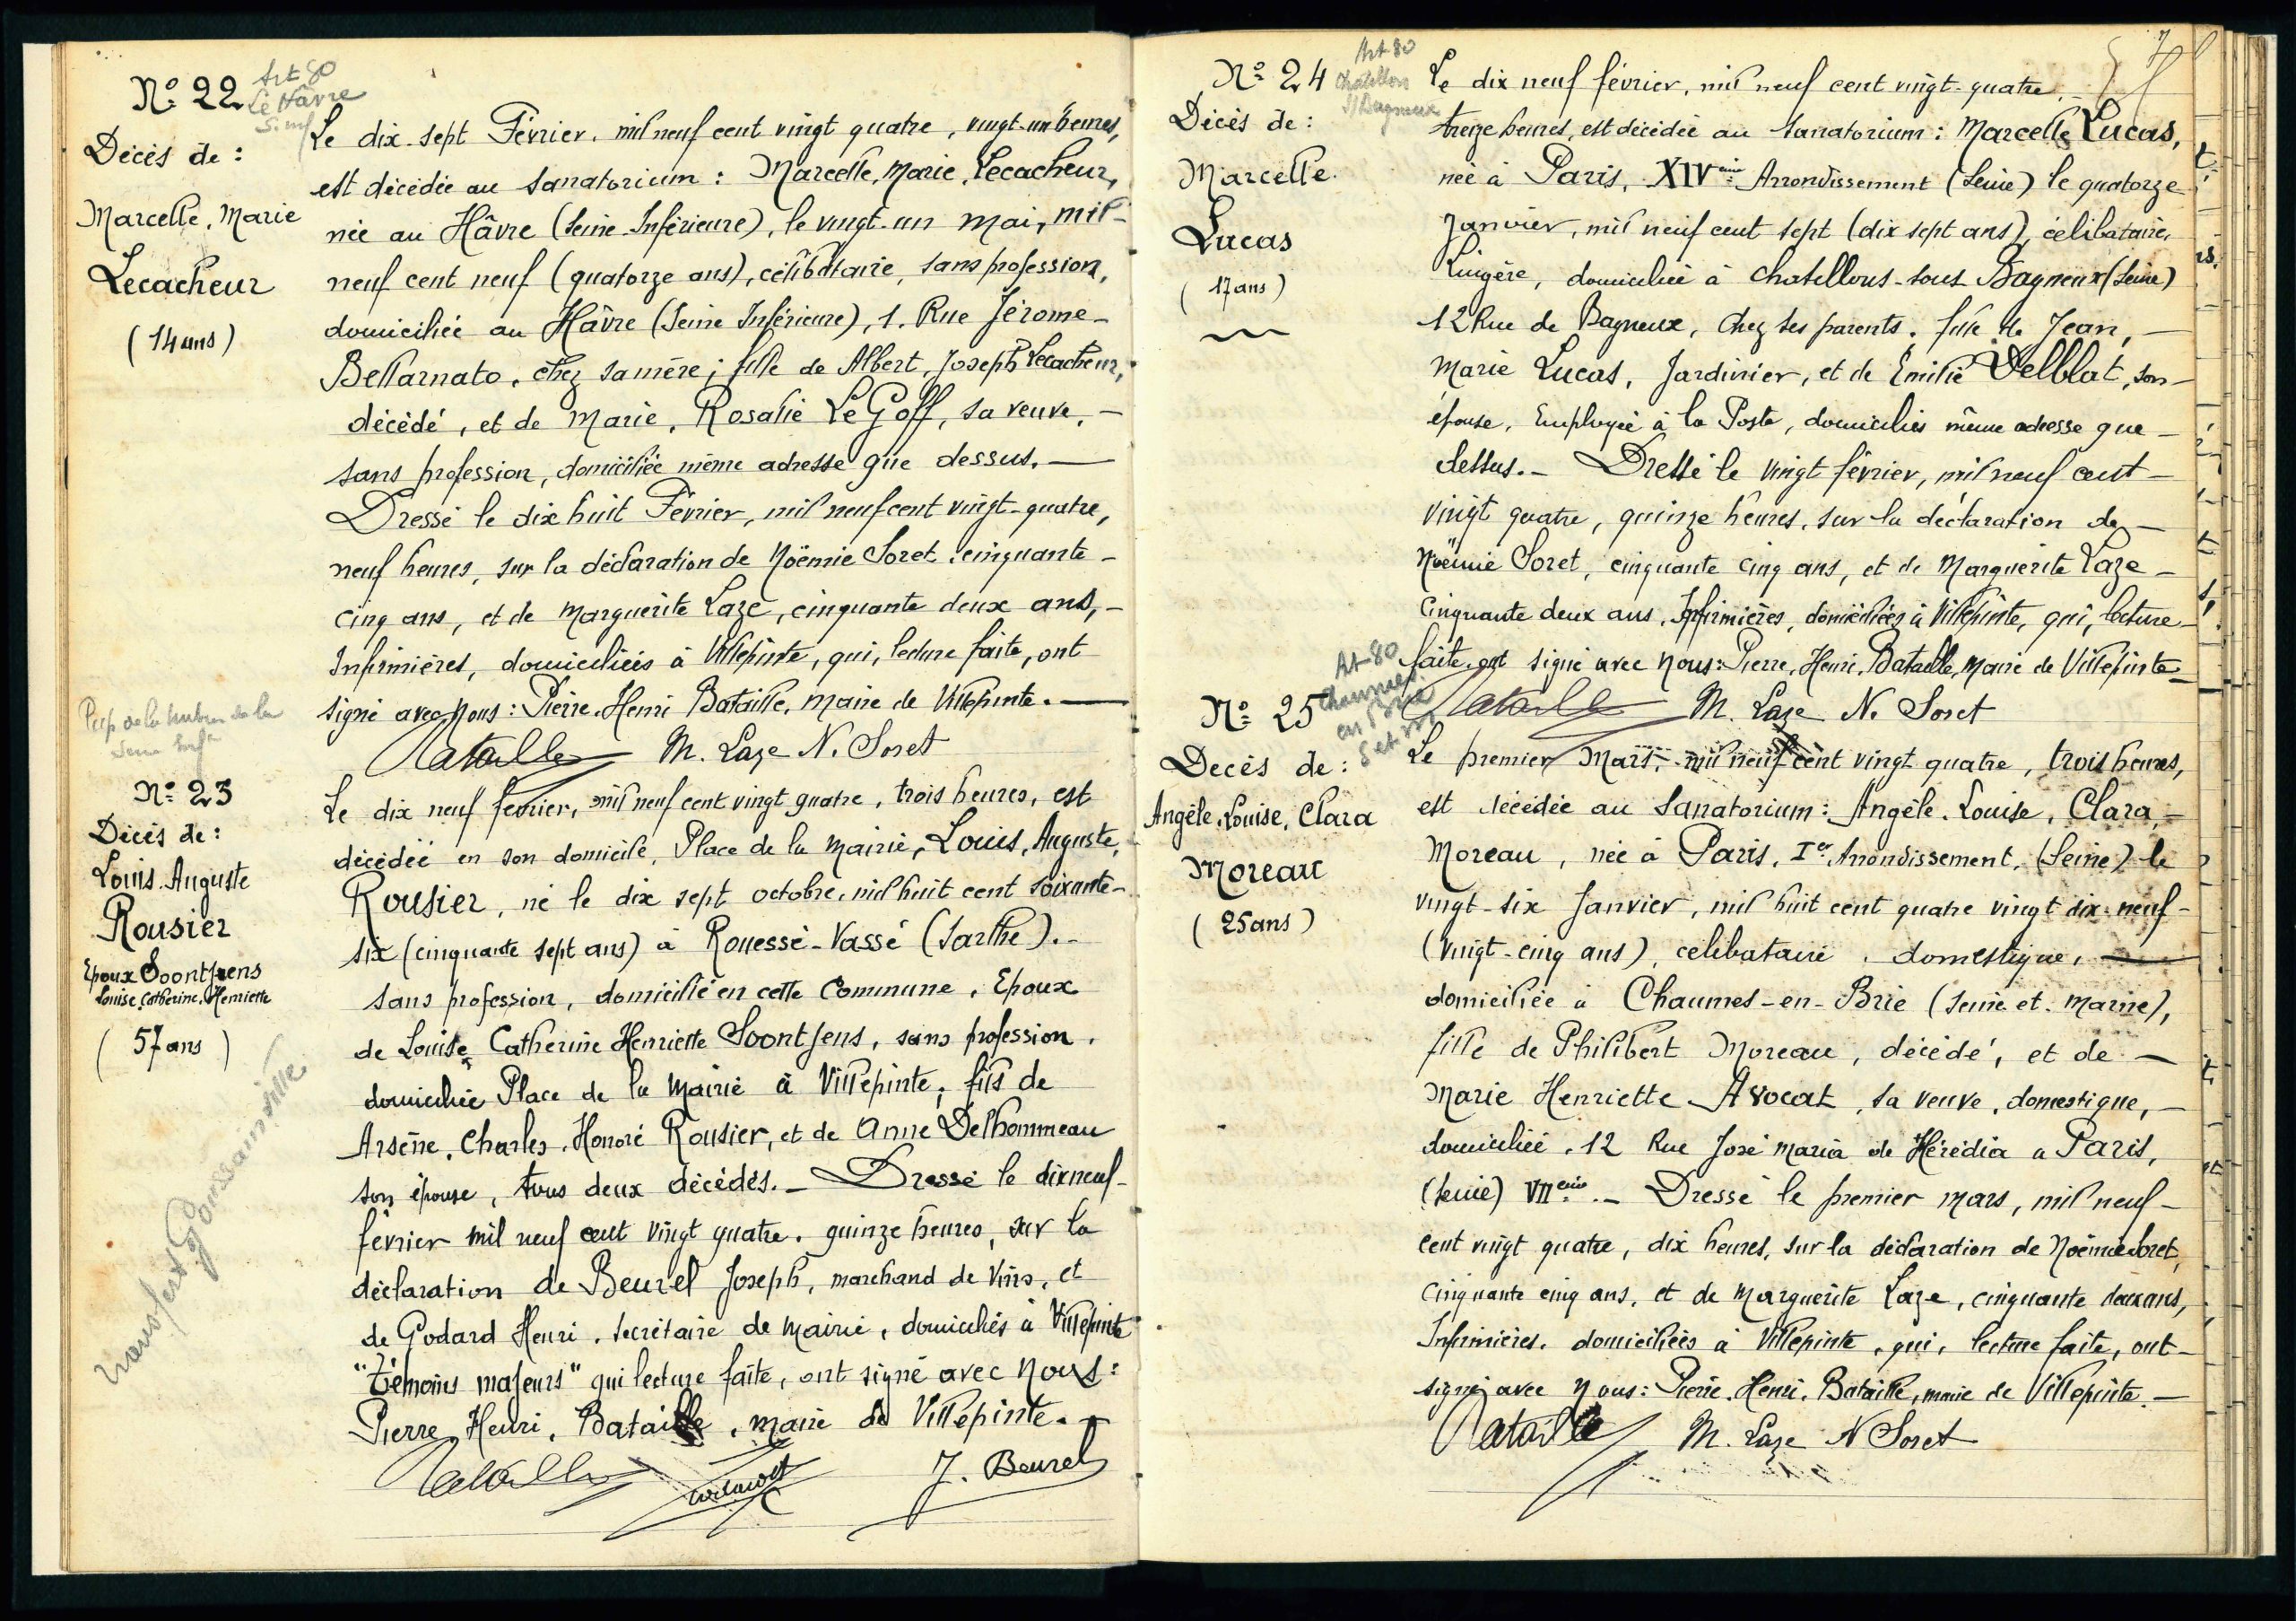 Nº 22
Art 80
Le Hâvre
S. Inf
Décès de :
Marcelle, Marie
Lecacheur
(14 ans)
Le dix-sept Février, mil neuf cent vingt quatre, vingt-un heures,
est décédée au Sanatorium : Marcelle, Marie, Lecacheur,
née au Hâvre (Seine-Inférieure), le vingt-un mai, mil-
neuf cent neuf (quatorze ans), célibataire, sans profession,
domiciliée au Hâvre (Seine Inférieure), 1. Rue Jérome-
Bellarnato, chez sa mère ; fille de Albert, Joseph Lecacheur,
décédé, et de Marie, Rosalie Le Goff, sa veuve, -
sans profession, domiciliée même adresse que dessus. —
Dressé le dix huit Février, mil neuf cent vingt-quatre,
neuf heures, sur la déclaration de Noëmie Soret, cinquante-
cinq ans, et de Marguerite Laze, cinquante deux ans, -
Infirmières, domiciliées à Villepinte, qui, lecture faite, ont
signé avec Nous : Pierre, Henri Bataille, Maire de Villepinte. —
Bataille M. Laze N. Soret
Nº 23
Décès de :
Louis Auguste
Rousier
Epoux Soontjens
Louise, Catherine, Henriette
(57 ans)
transfert Goussainville
Le dix neuf février, mil neuf cent vingt quatre, trois heures, est
décédée en son domicile, Place de la Mairie, Louis, Auguste,
Rousier, né le dix sept octobre, mil huit cent soixante-
six (cinquante sept ans) à Rouessé-Vassé (Sarthe).-
sans profession, domicilié en cette Commune, Epoux
de Louise Catherine Henriette Soontjens, sans profession,
domiciliée Place de la Mairie à Villepinte ; fils de
Arsène, Charles, Honoré Rousier, et de Anne Delhommeau
son épouse, tous deux décédés. - Dressé le dix neuf-
février mil neuf cent vingt quatre, quinze heures, sur la
déclaration de Beurel Joseph, marchand de Vins, et
de Godard Henri, secrétaire de Mairie, domiciliés à Villepinte
"témoins majeurs" qui lecture faite, ont signé avec Nous :
Pierre, Henri, Bataille, Maire de Villepinte. -
Bataille J. Beurel
7
Nº 24
Art 80
Chatillon
s/ Bagneux
Décès de :
Marcelle
Lucas
(17 ans)
Le dix neuf février, mil neuf cent vingt-quatre, -
treize heures, est décédée au Sanatorium : Marcelle Lucas,
née à Paris, XIVème Arrondissement (Seine) le quatorze
Janvier, mil neuf cent sept (dix sept ans), célibataire,
Lingère, domiciliée à Chatillons-sous Bagneux (Seine)
12 Rue de Bagneux, Chez ses parents ; fille de Jean, —
Marie Lucas, Jardinier, et de Emilie Delblat, son-
épouse, Employée à la Poste, domiciliés même adresse que -
dessus. - Dressé le vingt février, mil neuf cent -
vingt quatre, quinze heures, sur la déclaration de -
Noëmie Soret, cinquante cinq ans, et de Marguerite Laze -
Cinquante deux ans, Infirmières, domiciliées à Villepinte, qui, lecture
faite, ont signé avec Nous : Pierre, Henri, Bataille, Maire de Villepinte -
Bataille M. Laze N. Soret
Nº 25
Art 80
Chaumes
en Brie
S et M
Decès de :
Angèle, Louise, Clara
Moreau
(25 ans)
Le premier Mars, mil neuf cent vingt quatre, trois heures,
est décédée au Sanatorium : Angèle, Louise, Clara, -
Moreau, née à Paris, Ier Arrondissement, (Seine) le
vingt-six Janvier, mil huit cent quatre vingt dix-neuf-
(vingt-cinq ans), célibataire, domestique, —
domiciliée à Chaumes-en-Brie (Seine-et-Marne),
fille de Philibert Moreau, décédé, et de —
Marie Henriette Avocat, sa veuve, domestique, —
domiciliée, 12 Rue José Maria de Hérédia a Paris,
(Seine) VIIème. - Dressé le premier mars, mil neuf -
cent vingt quatre, dix heures, sur la déclaration de Noëmie Soret,
cinquante cinq ans, et de Marguerite Laze, cinquante deux ans,
Infirmières, domiciliées à Villepinte, qui, lecture faite, ont -
signé avec Nous : Pierre, Henri, Bataille, maire de Villepinte. -
Bataille M. Laze N Soret